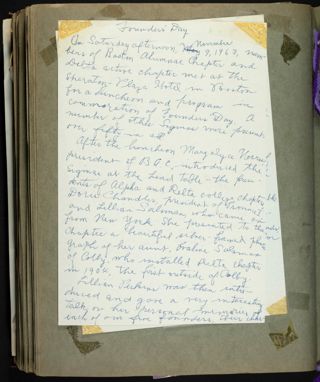 Founders' Day
On Saturday afternoon, November 9, 1963, mem-
bers of Boston Alumnae Chapter and
Delta active chapter met at the
Sheraton-Plaza Hotel in Boston
for a luncheon and program in
commemoration of Founders' Day. A
number of other Sigmas were present.
over fifty in all
After the luncheon
president of B.A.C. introduced the
Sigmas at the head table - the presi-
dents of Alpha and Delta college chapters
Doris Chandler, president of
and Lillian Salsman who came
from New York. She presented to the
Chapter a beautiful silver framed photo-
graph of her aunt, Evaline Salsman
of Colby, who installed Delta Chapter
in 1904, the first outside of Colby.
Lillian Perkins was then intro-
duced and gave a very interesting
talk on her personal memories of
each of our five Founders.